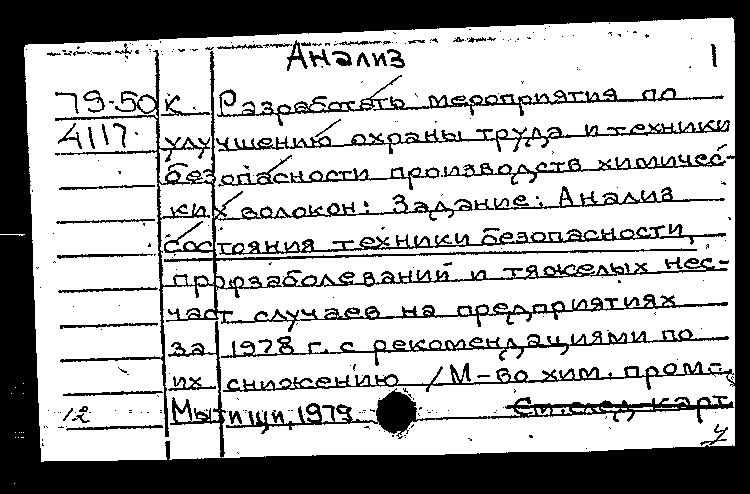 Анализ 1
79-50 к. Разработать мероприятия по
4117. улучшению охраны труда и техники
безопасности производств химичес-
ких волокон: Задание: Анализ
состояния техники безопасности,
профзаболеваний и тяжелых нес-
част. случаев на предприятиях
за 1978 г. с рекомендациями по
их снижению /М-во хим. пром.
12 Мытищи, 1979 См. след. карт.